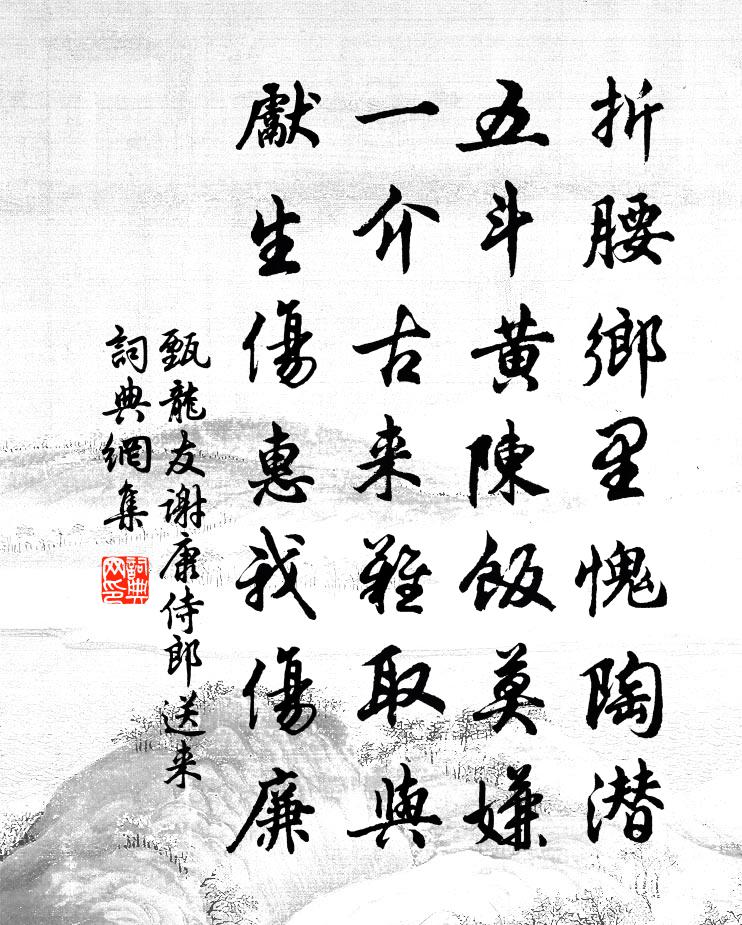 折腰鄉里愧陶潛
五斗黃陳飯莫嫌
一介古来難取與
獻生傷惠我傷廉
甄龍友謝庾侍郎送来
詞典網集
詞典網印